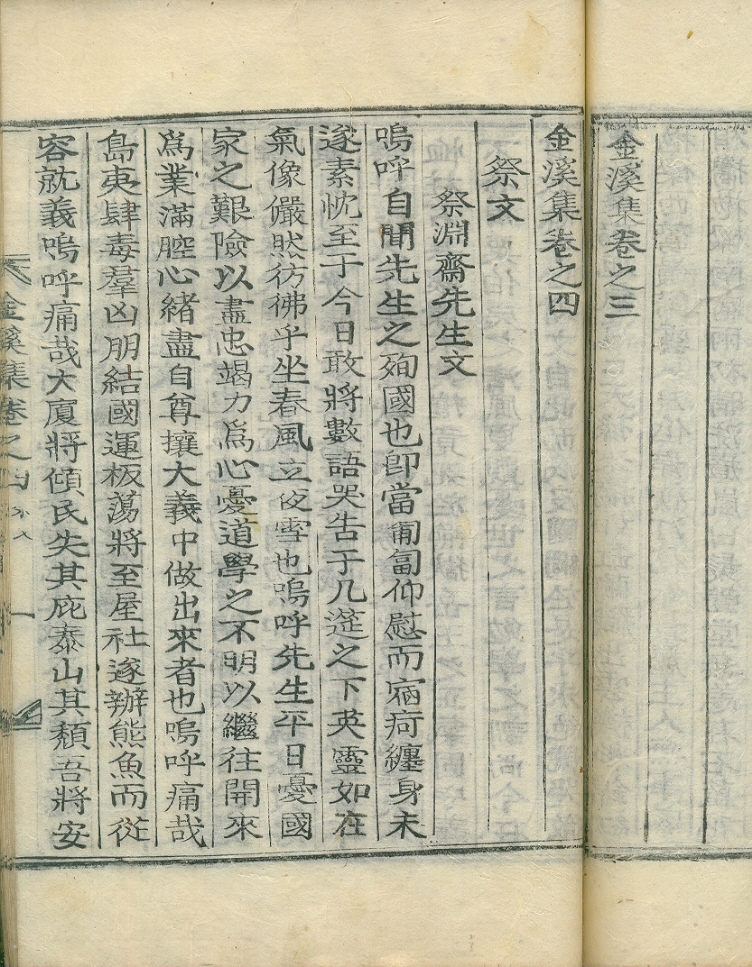 金溪集卷之三
金溪集卷之四
祭文
祭淵齋先生文
嗚呼自聞先生之殉國也卽當匍匐仰慰而痼疴纏身未
遂素忱至于今日敢將數語哭告于几筵之下英靈如在
氣像儼然彷彿乎坐春風立夜雪也嗚呼先生平日憂國
家之艱險以盡忠竭力爲心憂道學之不明以繼往開來
爲業滿腔心緖盡自尊攘大義中做出來者也嗚呼痛哉
島夷肆毒羣凶朋結國運板蕩將至屋社遂辦熊魚而從
容就義嗚呼痛哉大廈將傾民失其庇泰山其頹吾將安
金溪集卷之四
一